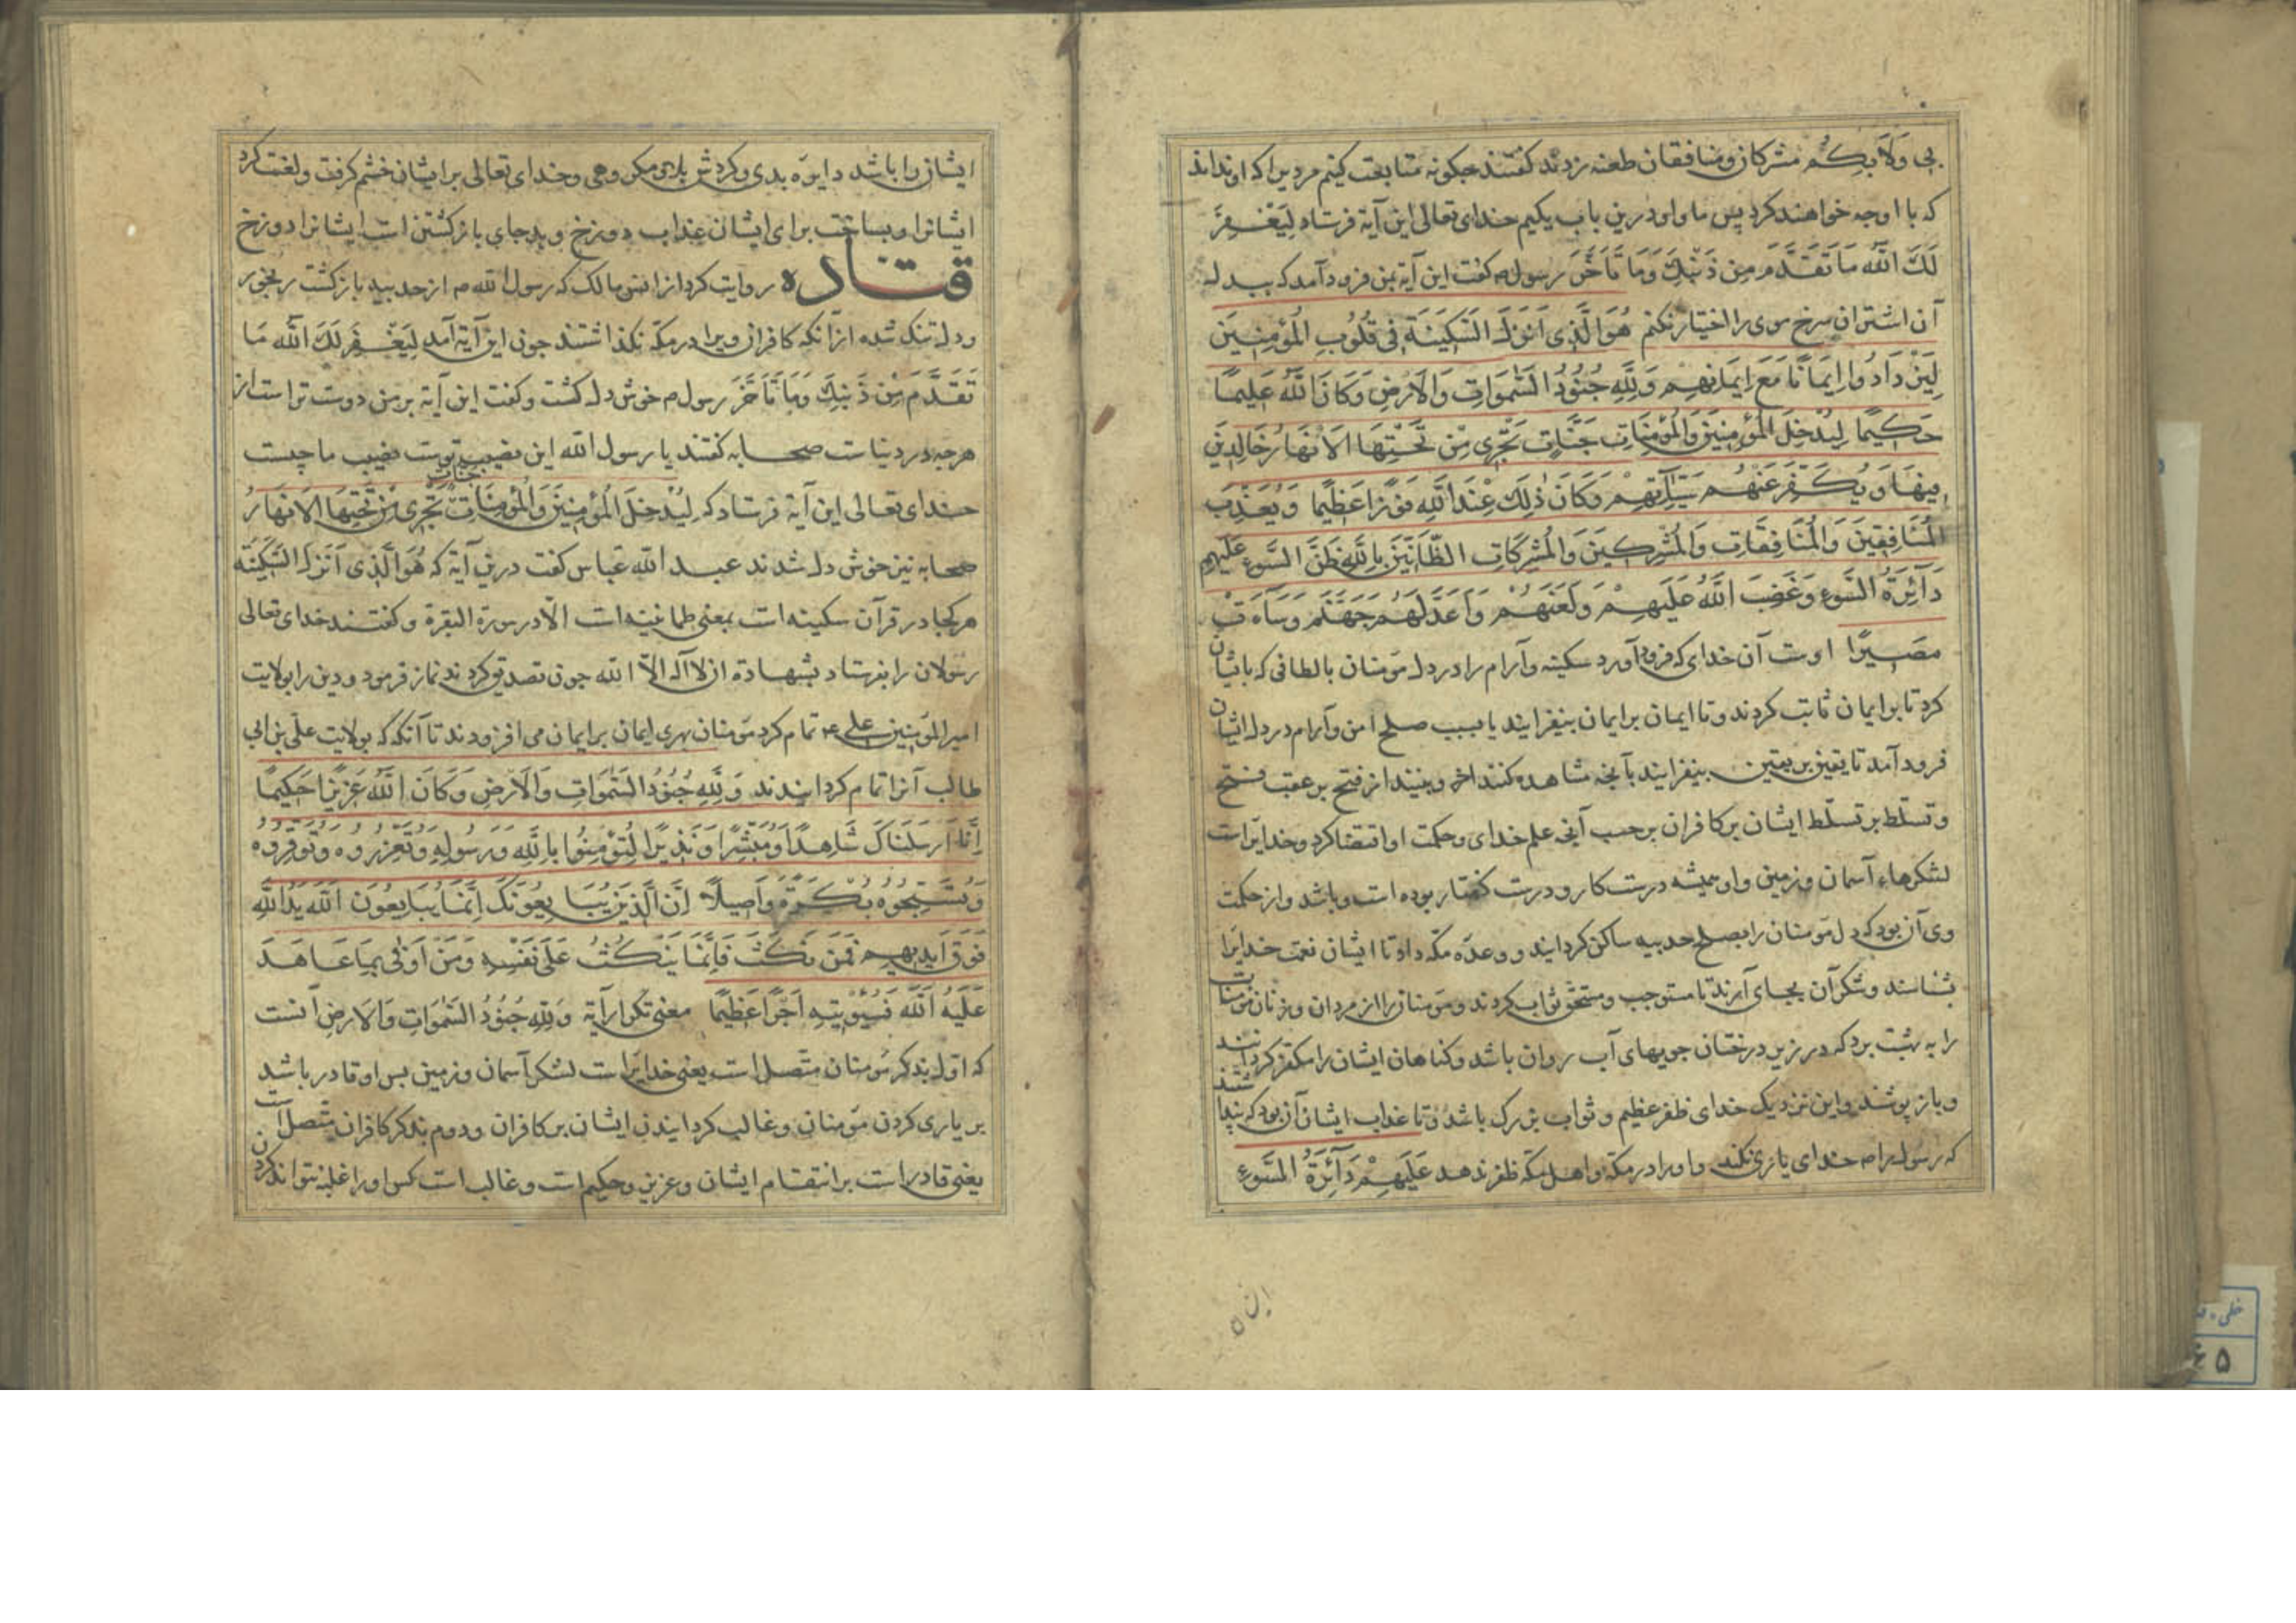 بی وَلَا بِكُم مشرکان و منافقان طعنه زدند کفتند جکونه متابعت کنیم مردیرا که او نداند
که با او جه خواهند کرد پس ما و او درین باب یکیم خدای تعالی این آیة فرستاد لِیَغْفِرَ
لَكَ اللَّهُ مَا تَقَدَّمَ مِن ذَنْبِكَ وَمَا تَأَخَّرَ رسول م کفت این آیة بمن فرود آمد که ببدل
آن اشتران سرخ موی را اختیار نکنم هُوَ الَّذِی اَنْزَلَ السَّكِینَةَ فِی قُلُوبِ الْمُؤْمِنِینَ
لِیَزْدَادُوا اِیمَانًا مَعَ اِیمَانِهِم وَلِلَّهِ جُنُودُ السَّمَوَاتِ وَالْاَرْضِ وَكَانَ اللَّهُ عَلِیمًا
حَكِیمًا لِیُدْخِلَ الْمُؤْمِنِینَ وَالْمُؤْمِنَاتِ جَنَّاتٍ تَجْرِی مِنْ تَحْتِهَا الْاَنْهَارُ خَالِدِینَ
فِیهَا وَ یُكَفِّرَ عَنْهُم سَیِّاٰتِهِمْ وَكَانَ ذٰلِكَ عِنْدَ اللَّهِ فَوْزًا عَظِیمًا وَیُعَذِّبَ
الْمُنَافِقِینَ وَالْمُنَافِقَاتِ وَالْمُشْرِكِینَ وَالْمُشْرِكَاتِ الظَّانِّینَ بِاللَّهِ ظَنَّ السَّوءِ عَلَیْهِم
دَآئِرَةُ السَّوءِ وَغَضِبَ اللَّهُ عَلَیْهِمْ وَلَعَنَهُمْ وَاَعَدَّ لَهُم جَهَنَّمَ وَسَآءَتْ
مَصِیرًا اوست آن خدای که فرود آورد سکینه و آرام را در دل مؤمنان بالطافی که باایشان
کرد تا بر ایمان ثابت کردند و تا ایمان بر ایمان بیفزایند یا بسبب صلح امن و آرام در دل ایشان
فرود آمد تا یقین بر یقین بیفزایند بآنچه مشاهده کنند و بینند از فتح بر عقب فتح
و تسلّط بر تسلّط ایشان بر کافران بر حسب آنچه علم خدای و حکمت او اقتضا کرد و خدایراست
لشکرهاء آسمان و زمین و او همیشه درست کار و درست کفتار بوده است و باشد و از حکمت
وی آن بود که دل مؤمنان را بصلح حدیبیه ساکن کردانید و وعده مکّه داد تا ایشان نعمت خدایرا
بشناسند و شکر آن بجای آرند تا مستوجب و مستحق ثواب کردند و مؤمنانرا از مردان و زنان مؤمنات
را به بهشت برد که در زیر درختان جویهای آب روان باشد و کناهان ایشان را مکفّر کردانند
و باز پوشند و این نزدیک خدای ظفر عظیم و ثواب بزرک باشد و تا عذاب ایشان آن بود که پنداشتند
که رسول را خدای یاری نکند و او را در مکّة و اهل مکّه ظفر ندهد عَلَیْهِمْ دَآئِرَةُ السَّوءِ
ان ه
ایشان را باشد دایره بدی و کردش بدی و خدای تعالی بر ایشان خشم کرفت و لعنت کرد
ایشانرا و بساخت برای ایشان عذاب دوزخ و بد جای باز کشتن است ایشانرا دوزخ
قتاده روایت کرد از انس مالک که رسول اللّه م از حدیبیه باز کشت رنجور
و دلتنک شده از آنکه کافران ویرا در مکّه نکذاشتند جون این آیة آمد لِیَغْفِرَ لَكَ اللَّهُ مَا
تَقَدَّمَ مِن ذَنْبِكَ وَمَا تَأَخَّرَ رسول م خوش دل کشت و کفت این آیة بر من دوست تر است از
هرجه در دنیاست صحابه کفتند یا رسول اللّه این نصیب تست نصیب ما چیست
خدای تعالی این آیة فرستاد که لِیُدْخِلَ الْمُؤْمِنِینَ وَالْمُؤْمِنَاتِ جَنَّاتٍ تَجْرِی مِنْ تَحْتِهَا الْاَنْهَارُ
صحابه نیز خوش دل شدند عبد اللّه عباس کفت درین آیة که هُوَ الَّذِی اَنْزَلَ السَّكِینَةَ
هر کجا در قرآن سکینه است بمعنی طمانینه است الّا در سورة البقرة و کفتند خدای تعالی
رسولان را بفرستاد بشهادة ان لا اله الّا اللّه جون تصدیق کردند نماز فرمود و دین را بولایت
امیر المؤمنین علی ع تمام کرد مؤمنان بهری ایمان بر ایمان می افزودند تا آنکه که بولایت علی بن ابی
طالب آنرا تمام کردانیدند وَلِلَّهِ جُنُودُ السَّمَوَاتِ وَالْاَرْضِ وَكَانَ اللَّهُ عَزِیزًا حَكِیمًا
اِنَّا اَرْسَلْنَاكَ شَاهِدًا وَمُبَشِّرًا وَنَذِیرًا لِتُؤْمِنُوا بِاللَّهِ وَرَسُولِهِ وَتُعَزِّرُوهُ وَتُوَقِّرُوهُ
وَتُسَبِّحُوهُ بُكْرَةً وَاَصِیلًا اِنَّ الَّذِینَ یُبَایِعُونَكَ اِنَّمَا یُبَایِعُونَ اللَّهَ یَدُ اللَّهِ
فَوْقَ اَیْدِیهِم فَمَنْ نَكَثَ فَاِنَّمَا یَنْكُثُ عَلَی نَفْسِهِ وَمَنْ اَوْفَی بِمَا عَاهَدَ
عَلَیْهُ اللَّهَ فَسَیُؤْتِیهِ اَجْرًا عَظِیمًا معنی تکرار آیة وَلِلَّهِ جُنُودُ السَّمَوَاتِ وَالْاَرْضِ آنست
که اوّل بذکر مؤمنان متّصل است یعنی خدایراست لشکر آسمان و زمین بس او قادر باشد
بر یاری کردن مؤمنان و غالب کردانیدن ایشان بر کافران و دوم بذکر کافران متّصل است
یعنی قادر است بر انتقام ایشان و عزیز و حکیم است و غالب است کس او را غلبه نتواند کردن